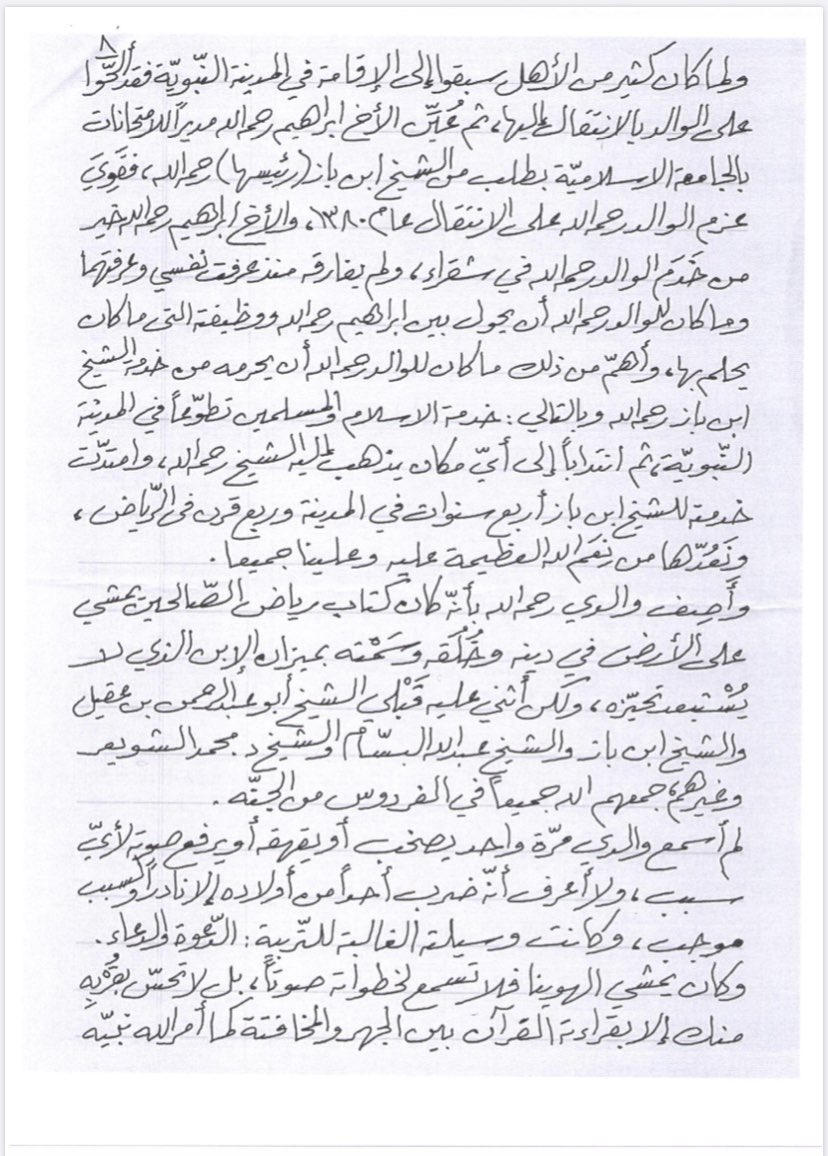 ٨
ولما كان كثير من الأهل سبقوا إلى الإقامة في المدينة النّبويّة فقد ألحّوا
على الوالد بالانتقال إليها، ثم عُيِّن الأخ ابراهيم رحمه الله مديراً للامتحانات
بالجامعة الاسلاميّة بطلب من الشيخ ابن باز (رئيسها) رحمه الله، فقَوِيَ
عزم الوالد رحمه الله على الانتقال عام ١٣٨٠، والأخ ابراهيم رحمه الله خير
من خَدَم الوالد رحمه الله في شقراء، ولم يفارقه منذ عرفت نفسي وعرفتهما
وما كان للوالد رحمه الله أن يحول بين ابراهيم رحمه الله ووظيفته التي ما كان
يحلم بها، وأهمّ من ذلك ما كان للوالد رحمه الله أن يحرمه من خدمة الشيخ
ابن باز رحمه الله وبالتالي: خدمة الاسلام والمسلمين تطوّعاً في المدينة
النّبويّة، ثم انتداباً إلى أيّ مكان يذهب إليه الشيخ رحمه الله، وامتدّت
خدمته للشيخ ابن باز أربع سنوات في المدينة وربع قرن في الرّياض،
ونَعُدّها من نِعَم الله العظيمة عليه وعلينا جميعا.
وأَصِف والدي رحمه الله بأنّه كان كتاب رياض الصّالحين يمشي
على الأرض في دينه وخُلُقه وسَمْته بميزان الإبن الذي لا
يُسْتبعد تحيّزه، ولكن أثنى عليه قَبْلي الشيخ أبو عبد الرحمن بن عقيل
والشيخ ابن باز والشيخ عبد الله البسّام والشيخ د. محمد الشويعر
وغيرهم، جمعهم الله جميعاً في الفردوس من الجنّة.
لم أسمع والدي مرّة واحد يصخب أو يقهقه أو يرفع صوته لأيّ
سبب، ولا أعرف أنّه ضرب أحداً من أولاده إلا نادراً ولسبب
موجب، وكانت وسيلته الغالبة للتّربية: الدّعوة والدعاء.
وكان يمشي الهوينا فلا تَسمع لخطواته صوتاً، بل لا يحسّ بقُرْبِهِ
منك إلا بقراءته القرآن بين الجهر والمخافتة كما أمر الله نبيّه